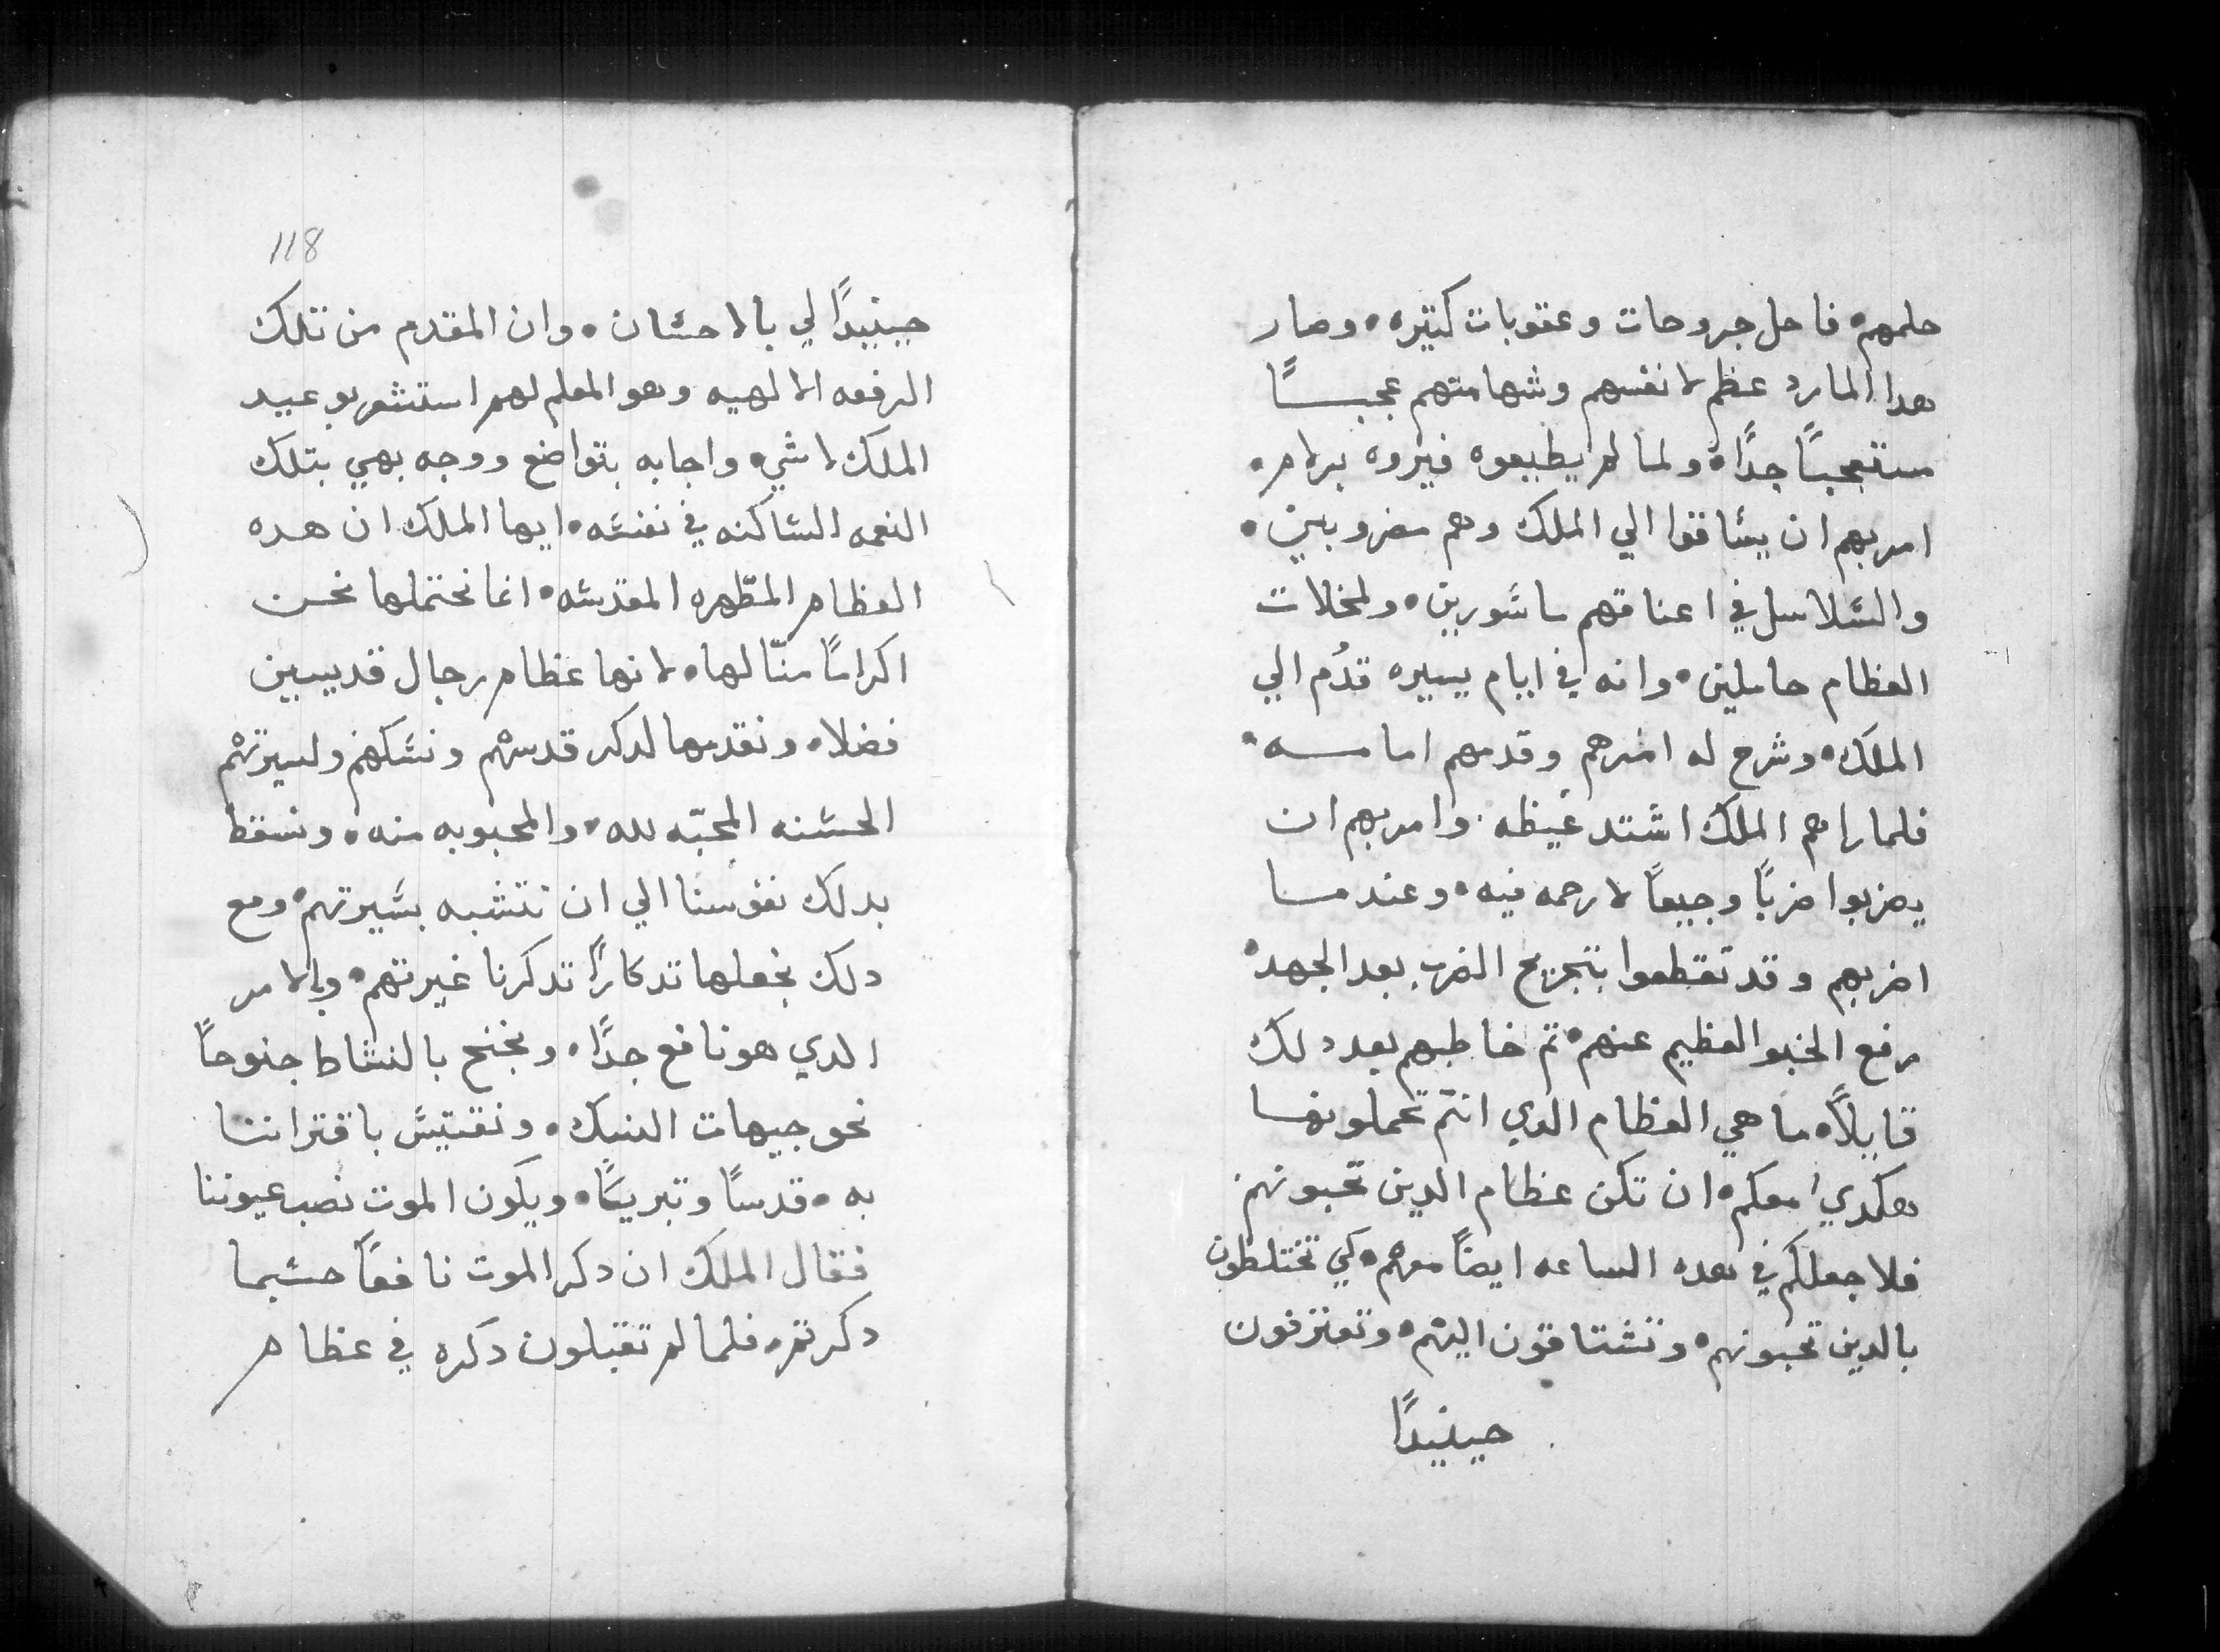 حلمهم• فاحل جروحات وعقوبات كتيره• وصار
هدا المارد عظم لانفسهم وشهامتهم عجبــاً
متعجباً جداً• ولما لم يطيعوه فيروه برامر•
امر بهم ان يساقوا الي الملك وهم مضروبين•
والسلاسل في اعناقهم ماسورين• ولمخلات
العظام حاملين• وانه في ايام يسيره قدُم الي
الملك• وشرح له امرهم وقدمهم امامــه•
فلما راهم الملك اشتد غيظه. وامر بهم ان
يضربوا ضرباً وجيعاً لا رحمه فيه• وعندمــا
اضربهم وقد تقطعوا بتجريح الضرب بعد الجهد•
رفع الخبو العظيم عنهم• تم خاطبهم بعد دلك
قايلاً• ما هي العظام الدي انتم تحملونهــا
هكدي معكم• ان تكن عظام الدين تحبونهم
فلاجعلكم في هده الساعه ايضاً معهم• كي تختلطون
بالدين تحبونهم• وتشتاقون اليهم• وتعتزفون
حينيداً
118
حينيداً لي بالاحسان• وان المقدم من تلك
الرفعه الالهيه وهو المعلم لهم استشعر بوعيد
الملك لا شي• واجابه بتواضع ووجه بهي بتلك
النعمه الساكنه في نفسه• ايها الملك ان هده
العظام المطّهره المقدسه• انما نحتملها نحــن
اكراماً منّا لها• لانها عظام رجال قديسين
فضلا• ونقدمها لدكر قدسهم ونسكهم ولسيرتهم
الحسنه المحبّه لله• والمحبوبه منه• ونسقط
بدلك نفوسنا الي ان نتشبه بسيرتهم• ومع
دلك نجعلها تدكاراً تدكرنا غيرتهم• والامر
الدي هو نافع جداً• ونجنح بالنشاط جنوحاً
نحو جيهات النسك• ونقتبس باقتراننــا
به• قدساً وتبريكاً• ويكون الموت نصب عيوننا
فقال الملك ان دكر الموت نافعاً حسبما
دكرتم• فلما لم تقبلون دكره في عظام